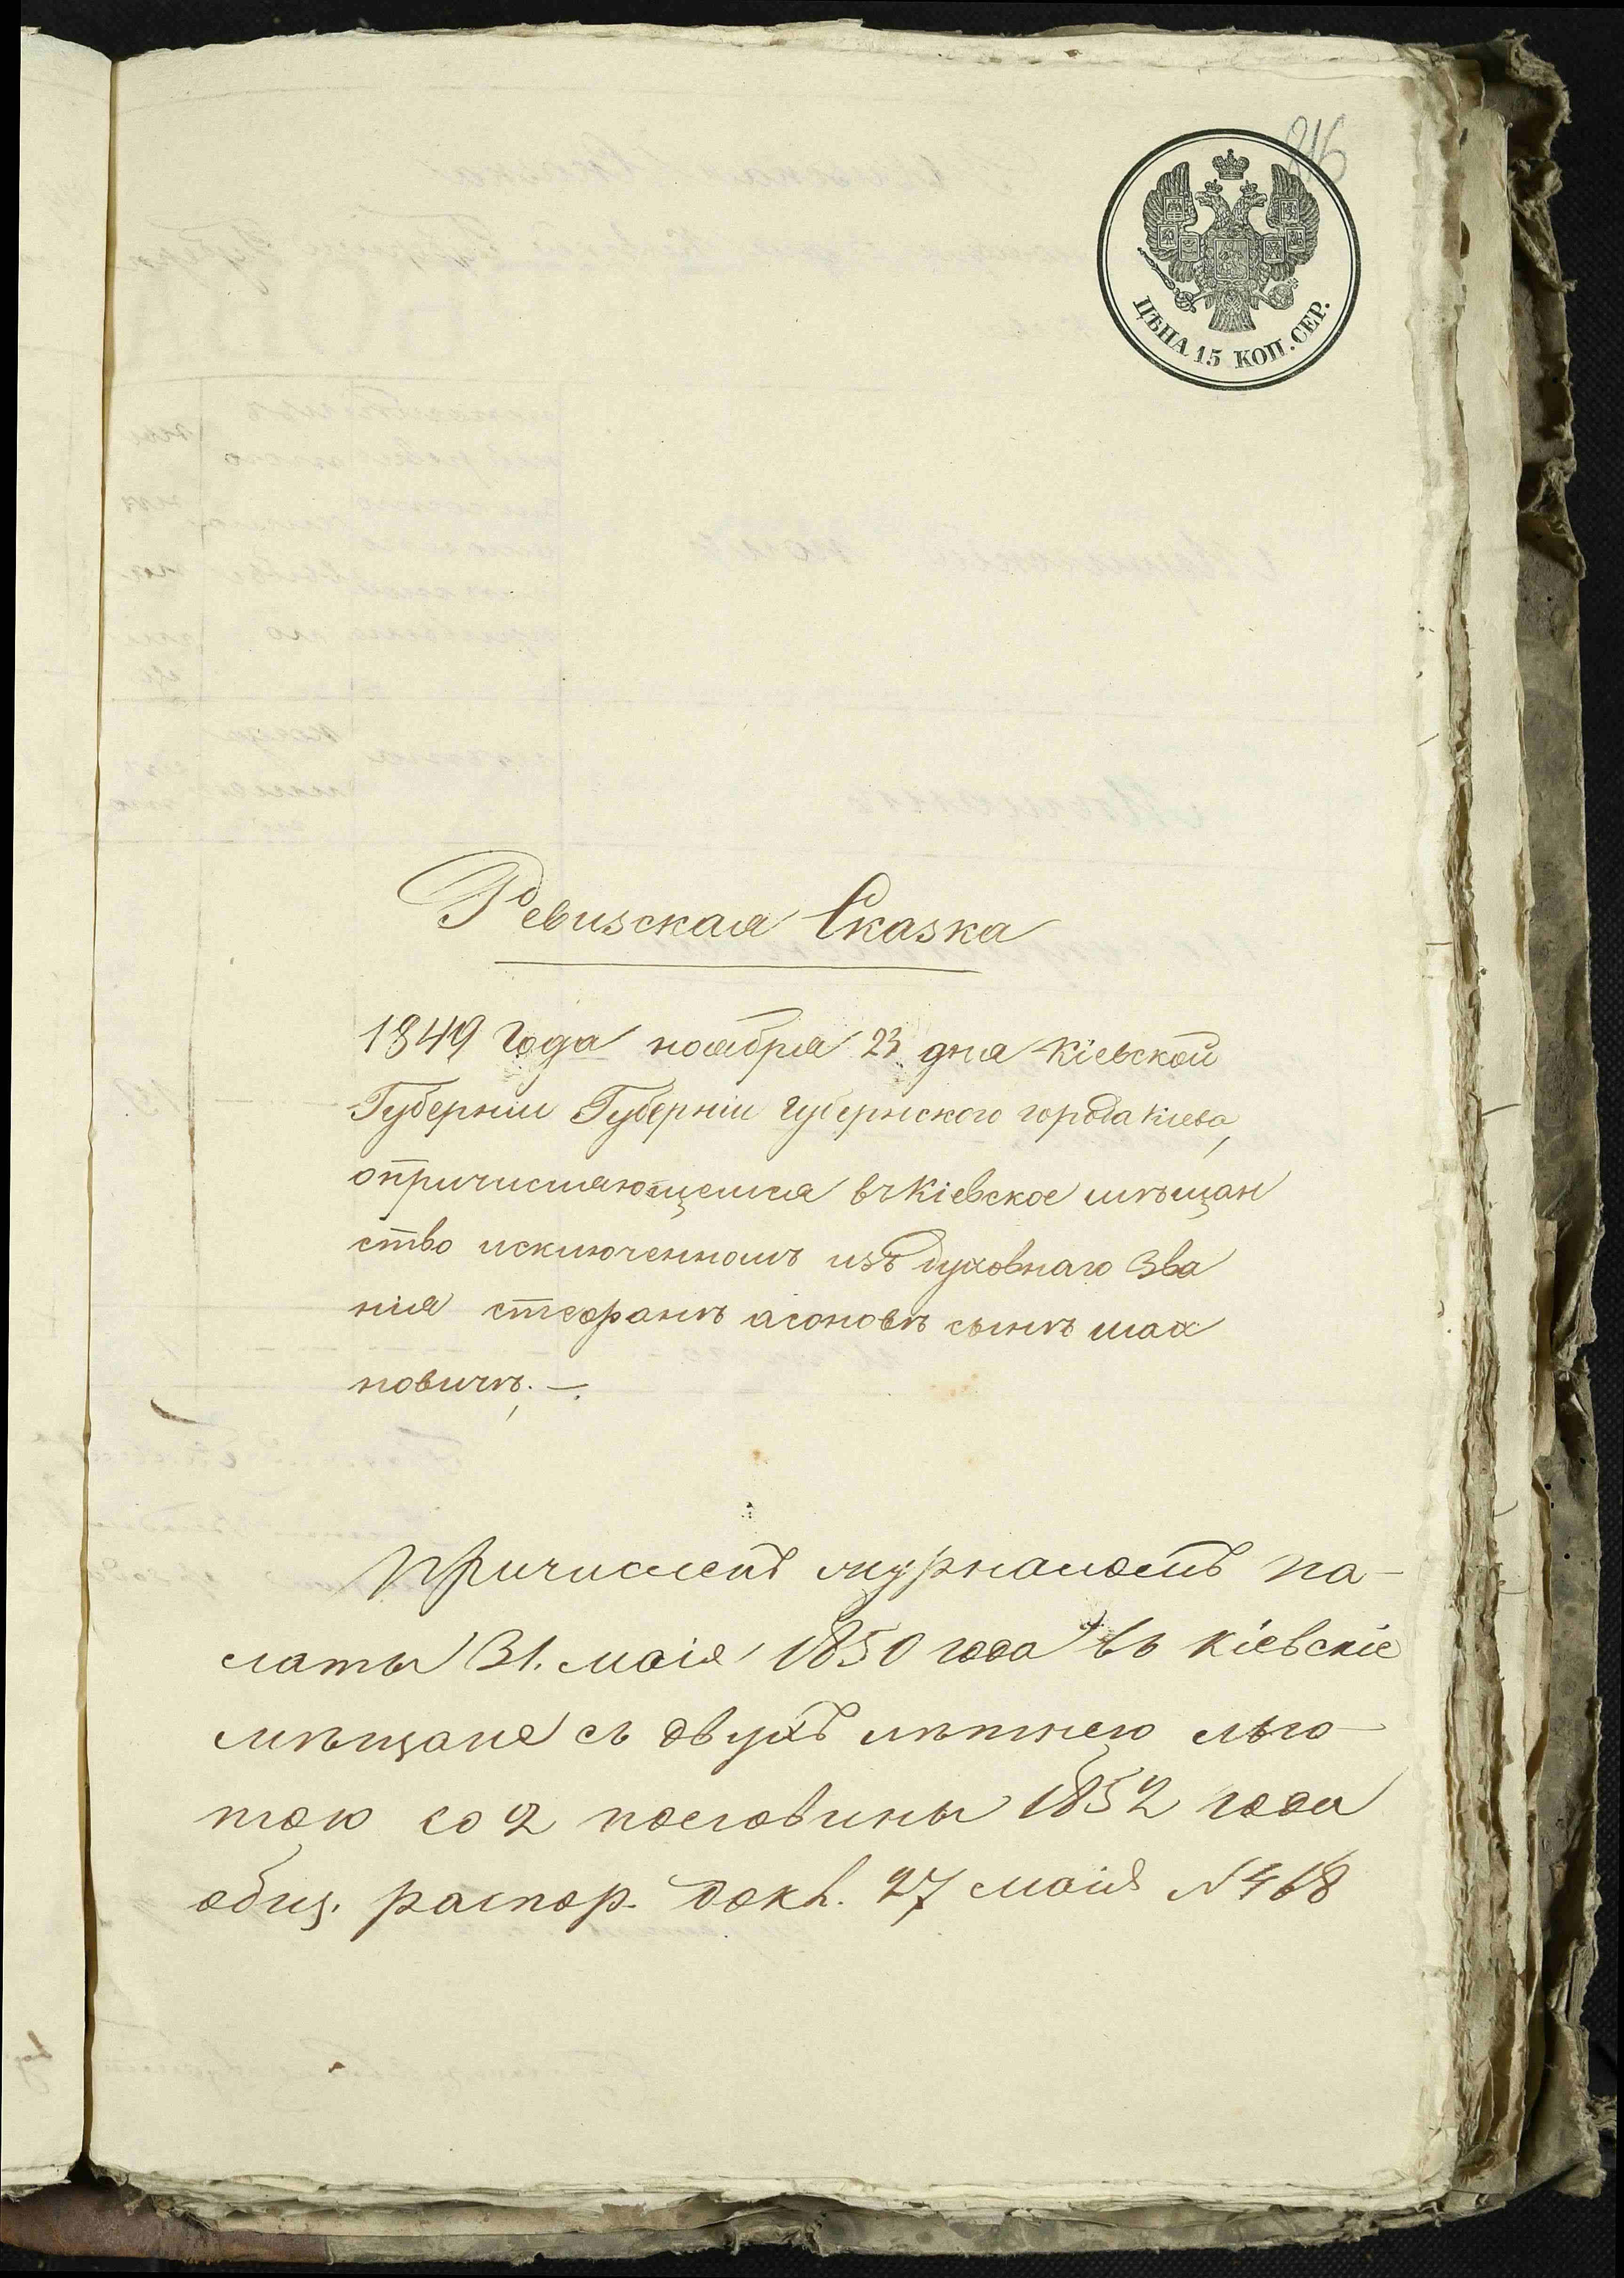 216
ЦѢНА 15 КОП. СЕР.
Ревизская Сказка
1849 Года ноября 23 дня Кіевской
Губерніи Губерніи губернского города Кіева,
опричисляющемся въ Кіевское мѣщан
ство исключенномъ изъ духовнаго Зва
нія стефанѣ асоновѣ сынѣ шах
новичѣ. —
Причисленъ журналомъ па-
латы 31. маія 1850 года въ Кіевскіе
мѣщане съ двухъ лѣтнею льго-
тою со 2 половины 1852 года
общ. распор. докл. 27 маія № 468